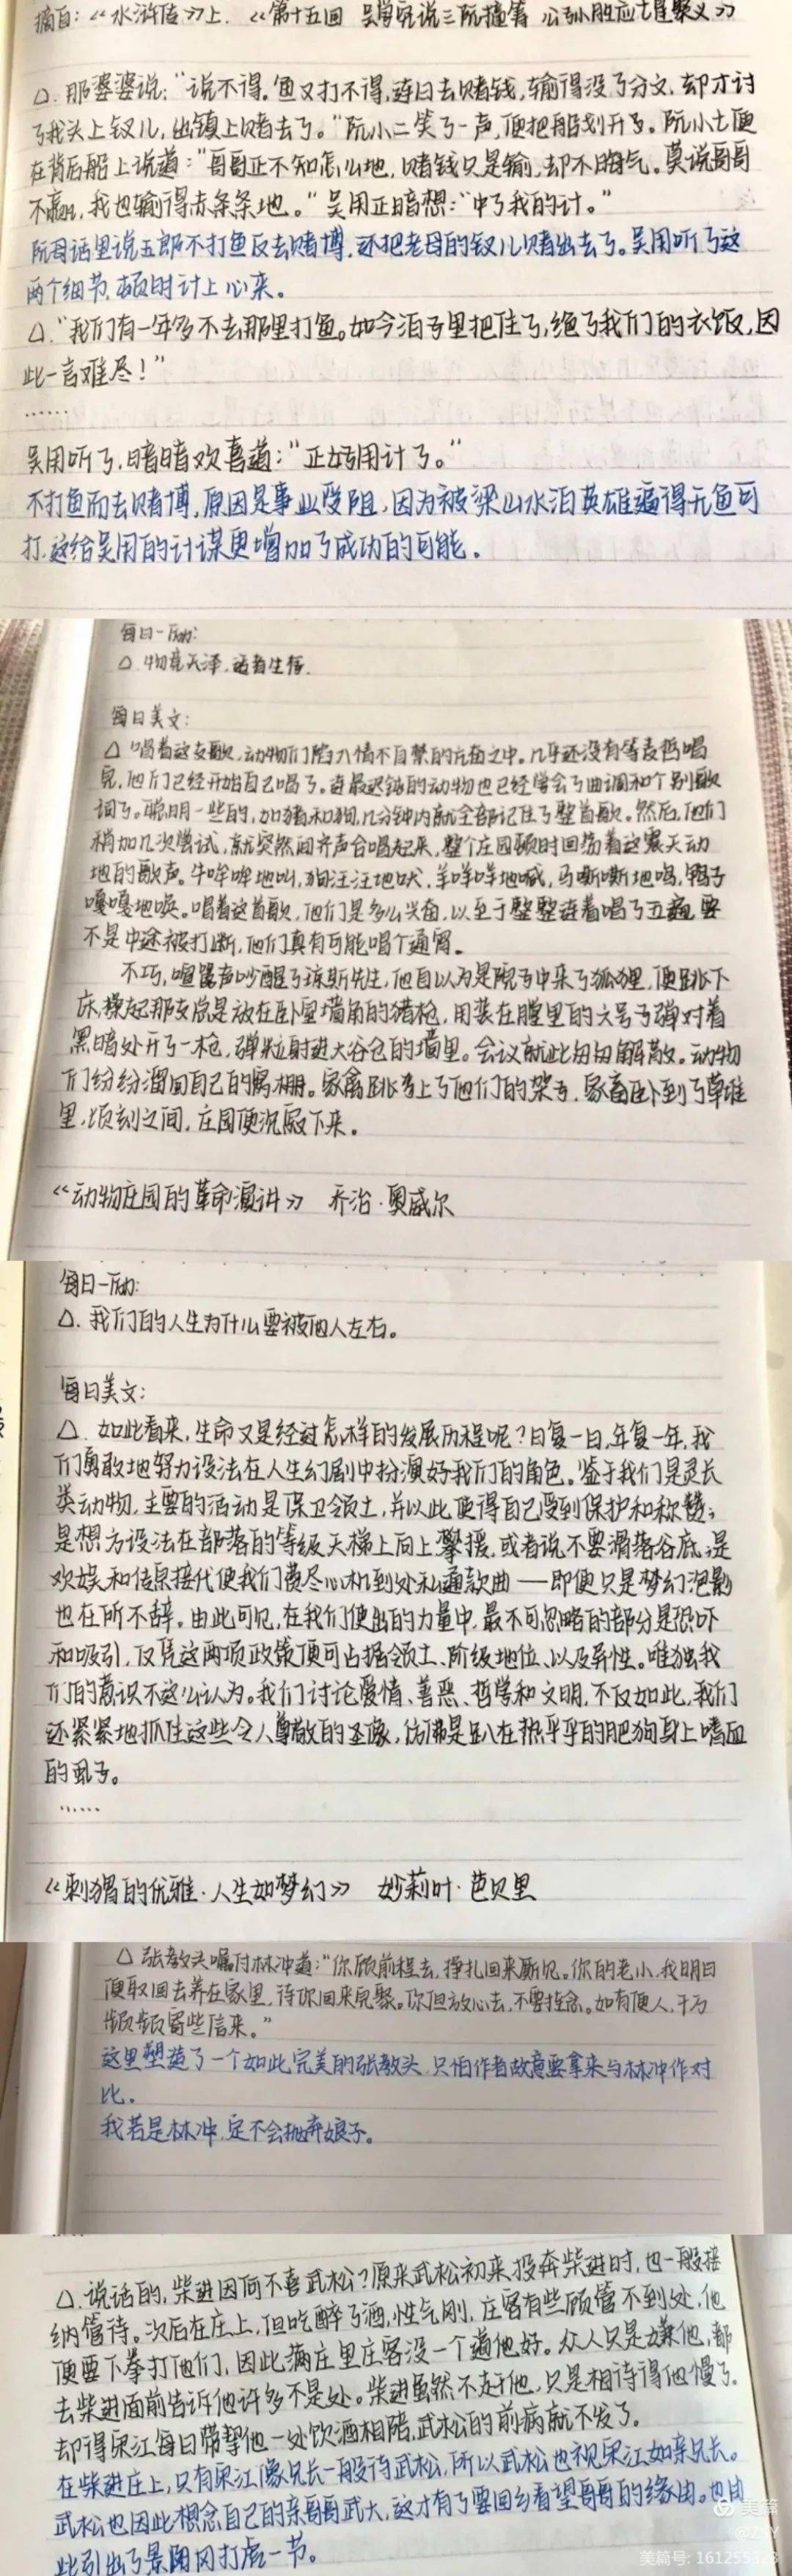 摘自：《水浒传》上.《第十五回 吴学究说三阮撞筹 公孙胜应七星聚义》
△.那婆婆说：“说不得.鱼又打不得,连日去赌钱,输得没了分文,却才讨
了我头上钗儿,出镇上赌去了。”阮小二笑了一声,便把船划开了。阮小七便
在背后船上说道：“哥哥正不知怎么地,赌钱只是输,却不晦气。莫说哥哥
不赢,我也输得赤条条地。”吴用正暗想：“中了我的计。”
阮母话里说五郎不打鱼反去赌博,还把老母的钗儿赌出去了。吴用听了这
两个细节,顿时计上心来。
△.“我们有一年多不去那里打鱼。如今泊子里把住了,绝了我们的衣饭,因
此一言难尽！”
……
吴用听了,暗暗欢喜道：“正好用计了。”
不打鱼而去赌博,原因是事业受阻,因为被梁山水泊英雄逼得无鱼可
打,这给吴用的计谋更增加了成功的可能.
每日一励:
△.物竞天泽,适者生存.
每日美文:
△唱着这支歌,动物们陷入情不自禁的亢奋之中。几乎还没有等麦哲唱
完,他们已经开始自己唱了。连最迟钝的动物也已经学会了曲调和个别歌
词了。聪明一些的,如猪和狗,几分钟内就全部记住了整首歌。然后,他们
稍加几次尝试,就突然间齐声合唱起来,整个庄园顿时回荡着这震天动
地的歌声。牛哞哞地叫,狗汪汪地吠,羊咩咩地喊,马嘶嘶地鸣,鸭子
嘎嘎地唤。唱着这首歌,他们是多么兴奋,以至于整整连着唱了五遍,要
不是中途被打断,他们真有可能唱个通宵。
不巧,喧嚣声吵醒了琼斯先生,他自以为是院子中来了狐狸,便跳下
床,操起那支总是放在卧室墙角的猎枪,用装在膛里的六号子弹对着
黑暗处开了一枪,弹粒射进大谷仓的墙里。会议就此匆匆解散。动物
们纷纷溜回自己的窝棚。家禽跳上了他们的架子,家畜卧到了草堆
里,顷刻之间,庄园便沉寂下来。
《动物庄园的革命演讲》 乔治·奥威尔
每日一励:
△.我们的人生为什么要被他人左右。
每日美文:
△.如此看来,生命又是经过怎样的发展历程呢?日复一日,年复一年,我
们勇敢地努力设法在人生幻剧中扮演好我们的角色。鉴于我们是灵长
类动物,主要的活动是保卫领土,并以此使得自己受到保护和称赞;
是想方设法在部落的等级天梯上向上攀援,或者说不要滑落谷底;是
欢娱和传宗接代使我们费尽心机到处私通款曲——即便只是梦幻泡影
也在所不辞。由此可见,在我们使出的力量中,最不可忽略的部分是恐吓
和吸引,仅凭这两项政策便可占据领土、阶级地位、以及异性。唯独我
们的意识不这么认为。我们讨论爱情、善恶、哲学和文明,不仅如此,我们
还紧紧地抓住这些令人尊敬的圣像,仿佛是趴在热乎乎的肥狗身上嗜血
的虱子。
……
《刺猬的优雅·人生如梦幻》 妙莉叶·芭贝里
△张教头嘱付林冲道：“你顾前程去,挣扎回来厮见。你的老小,我明日
便取回去养在家里,待你回来完聚。你但放心去,不要挂念。如有便人,千万
频频寄些信来。”
这里塑造了一个如此完美的张教头,只怕作者故意要拿来与林冲作对
比.
我若是林冲,定不会抛弃娘子。
△.说话的,柴进因何不喜武松?原来武松初来投奔柴进时,也一般接
纳管待。次后在庄上,但吃醉了酒,性气刚,庄客有些顾管不到处,他
便要下拳打他们,因此满庄里庄客没一个道他好。众人只是嫌他,都
去柴进面前告诉他许多不是处。柴进虽然不赶他,只是相待得他慢了.
却得宋江每日带挈他一处饮酒相陪,武松的前病就不发了。
在柴进庄上,只有宋江像兄长一般待武松,所以武松也视宋江如亲兄长。
武松也因此想念自己的亲哥哥武大,这才有了要回乡看望哥哥的缘由。也由
此引出了景阳冈打虎一节。
美篇
美篇号: